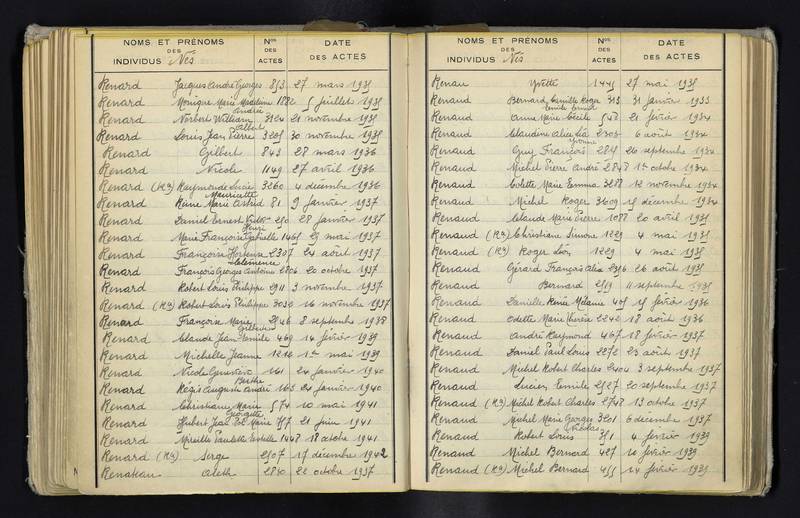 NOMS ET PRÉNOMS DES INDIVIDUS Nés Nos DES ACTES DATE DES ACTES
Renard Jacques André Georges 853 27 mars 1935
Renard Monique Marie Madeleine 1882 5 juillet 1935
Renard Norbert William André 3124 21 novembre 1935
Renard Louis Jean Pierre Albert 3205 30 novembre 1935
Renard Gilbert 843 28 mars 1936
Renard Nicole 1149 27 avril 1936
Renard (Ra) Raymonde Lucie 3260 4 décembre 1936
Renard Reine Marie Astrid Mauricette 81 9 janvier 1937
Renard Daniel Ernest Victor 250 28 janvier 1937
Renard Marie Françoise Gabrielle Henri 1465 29 mai 1937
Renard Françoise Hortense 2307 24 août 1937
Renard François Georges Antoine Clémence 2806 20 octobre 1937
Renard Robert Louis Philippe 2911 3 novembre 1937
Renard (Ra) Robert Louis Philippe 3030 16 novembre 1937
Renard Françoise Marie 2546 8 septembre 1938
Renard Claude Jean Camille Gilbert 469 14 février 1939
Renard Michelle Jeanne 1216 1er mai 1939
Renard Nicole Geneviève 161 24 janvier 1940
Renard Régis Auguste André Berthe 163 24 janvier 1940
Renard Christiane Marie 574 10 mai 1941
Renard Hubert Jean Marie Georgette 757 21 juin 1941
Renard Mireille Paulette Estelle 1448 18 octobre 1941
Renard (Ra) Serge 2507 17 décembre 1942
Renateau Aleth 2830 22 octobre 1937
NOMS ET PRÉNOMS DES INDIVIDUS Nés Nos DES ACTES DATE DES ACTES
Renau Yvette 1445 27 mai 1935
Renaud Bernard Camille Roger 313 31 janvier 1933
Renaud Anne Marie Cécile 548 21 février 1934
Renaud Claudine Alice 2303 6 août 1934
Renaud Guy François Yvonne 26 septembre 1934
Renaud Michel Pierre André 2848 1er octobre 1934
Renaud Colette Marie Emma 3288 12 novembre 1934
Renaud Michel Roger 3609 15 décembre 1934
Renaud Claude Marie Pierre 1088 20 avril 1935
Renaud (Ra) Christiane Simone 1229 4 mai 1935
Renaud (Ra) Roger Léon 1229 4 mai 1935
Renaud Gérard François 26 août 1935
Renaud Bernard 2519 11 septembre 1935
Renaud Danielle Renée Mélanie 405 15 février 1936
Renaud Odette Marie Thérèse 2242 18 août 1936
Renaud André Raymond 467 18 février 1937
Renaud Daniel Paul Louis 2272 23 août 1937
Renaud Michel Robert Charles 2404 3 septembre 1937
Renaud Lucien Emile 2527 20 septembre 1937
Renaud (Ra) Michel Robert Charles 2748 13 octobre 1937
Renaud Michel Marie Georges 3201 6 décembre 1937
Renaud Robert Louis Nicolas 351 4 février 1939
Renaud Michel Bernard 427 10 février 1939
Renaud (Ra) Michel Bernard 455 14 février 1939